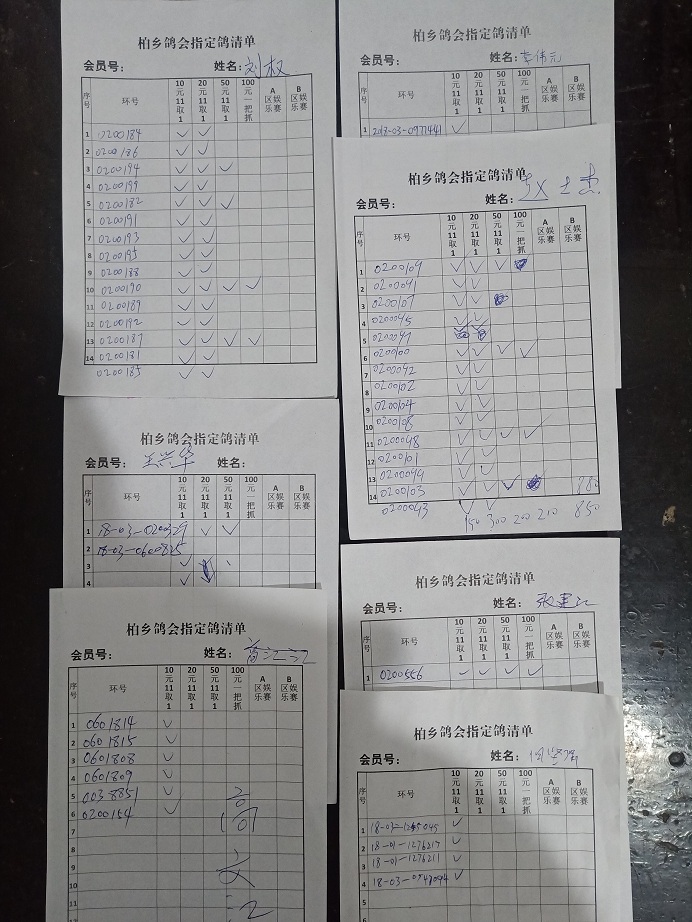 柏乡鸽会指定鸽清单
会员号: 姓名: 刘权
序号 环号 10元11取1 20元11取1 50元11取1 100元一把抓 A区娱乐赛 B区娱乐赛
1 0200184 ✓ ✓
2 0200186 ✓ ✓
3 0200194 ✓ ✓ ✓
4 0200199 ✓ ✓
5 0200182 ✓ ✓ ✓
6 0200191 ✓ ✓
7 0200193 ✓ ✓
8 0200195 ✓ ✓
9 0200188 ✓ ✓
10 0200190 ✓ ✓ ✓ ✓
11 0200189 ✓ ✓
12 0200192 ✓ ✓
13 0200187 ✓ ✓ ✓ ✓
14 0200181 ✓ ✓
0200185 ✓ ✓
柏乡鸽会指定鸽清单
会员号: 姓名:
序号 环号 10元11取1 20元11取1 50元11取1 100元一把抓 A区娱乐赛 B区娱乐赛
1 2018-03-0971441 ✓
柏乡鸽会指定鸽清单
会员号: 姓名: 赵士杰
序号 环号 10元11取1 20元11取1 50元11取1 100元一把抓 A区娱乐赛 B区娱乐赛
1 0200109 ✓ ✓ ✓
2 0200091 ✓ ✓
3 0200107 ✓ ✓
4 0200095 ✓ ✓
5 0200097
6 0200100 ✓ ✓ ✓ ✓
7 0200092 ✓ ✓
8 0200102 ✓ ✓
9 0200104 ✓ ✓
10 0200108 ✓ ✓
11 0200098 ✓ ✓ ✓ ✓
12 0200101 ✓ ✓
13 0200094 ✓ ✓
14 0200103 ✓ ✓ ✓
0200093 ✓ ✓
150 300 200 210 850
柏乡鸽会指定鸽清单
会员号: 姓名:
序号 环号 10元11取1 20元11取1 50元11取1 100元一把抓 A区娱乐赛 B区娱乐赛
1 18-03-0200329 ✓ ✓ ✓
2 18-03-0600825
3 ✓
4 ✓
柏乡鸽会指定鸽清单
会员号: 姓名: 张建江
序号 环号 10元11取1 20元11取1 50元11取1 100元一把抓 A区娱乐赛 B区娱乐赛
1 0200556 ✓ ✓ ✓ ✓
柏乡鸽会指定鸽清单
会员号: 姓名:
序号 环号 10元11取1 20元11取1 50元11取1 100元一把抓 A区娱乐赛 B区娱乐赛
1 0601814 ✓
2 0601815 ✓
3 0601808 ✓
4 0601809 ✓
5 0038851 ✓
6 0200154 ✓
7
8
9
10
11
柏乡鸽会指定鸽清单
会员号: 姓名:
序号 环号 10元11取1 20元11取1 50元11取1 100元一把抓 A区娱乐赛 B区娱乐赛
1 ✓
2 18-01-1276217 ✓
3 18-01-1276211 ✓
4 ✓
5
6